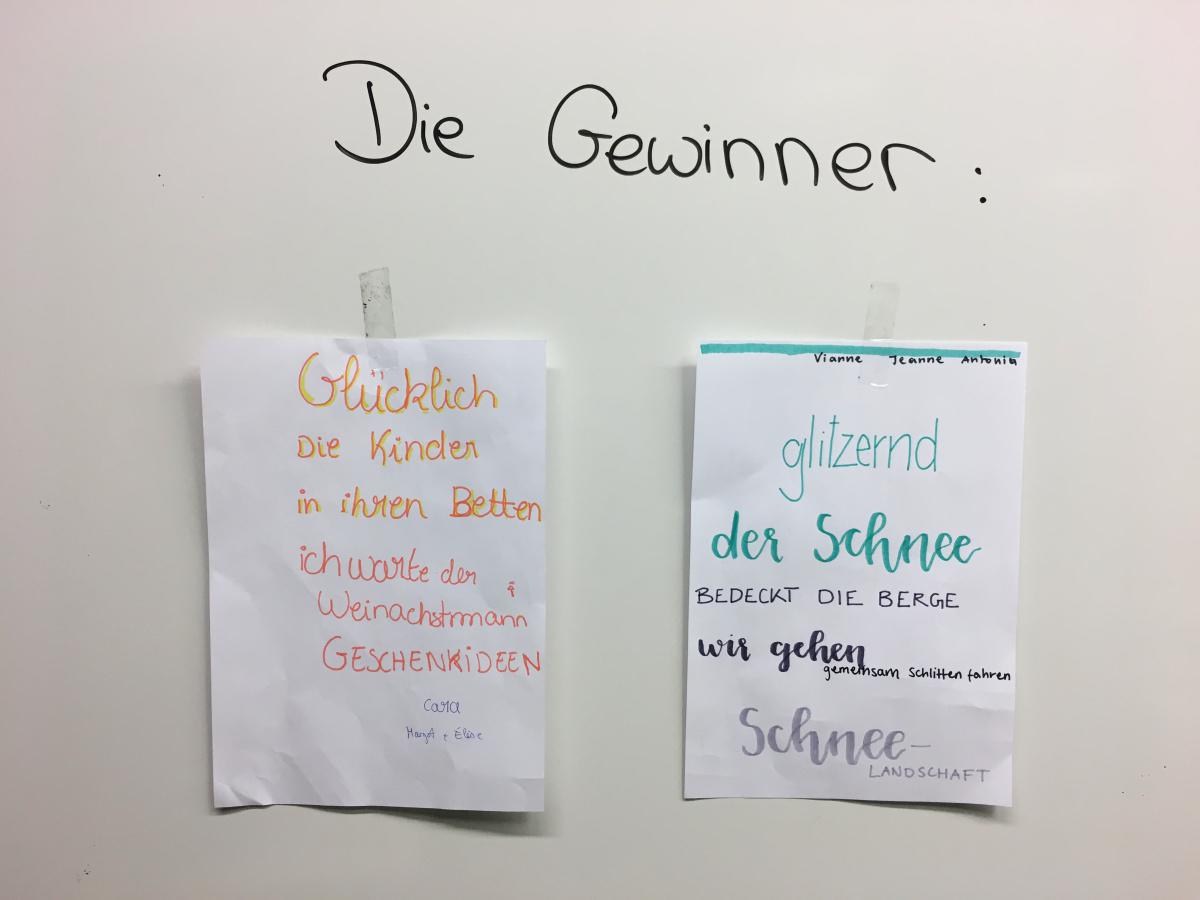 Die Gewinner:
Glücklich
Die Kinder
in ihren Betten
ich warte der
Weinachstmann
GESCHENKiDEEN
Cara
Margot + Élise
Vianne Jeanne Antonia
glitzernd
der Schnee
BEDECKT DIE BERGE
wir gehen
gemeinsam Schlitten fahren
Schnee-
LANDSCHAFT